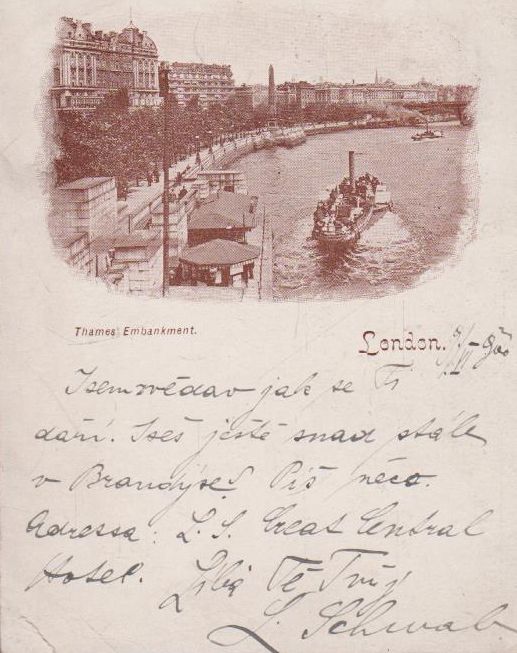 Thames Embankment.
London.
Jsem zvědav jak se Ti
daří. Jseš ještě snad stále
v Brandýse? Piš něco.
Adressa: L. S. Great Central
Hotel. Líbá Tě Tvůj
L. Schwab